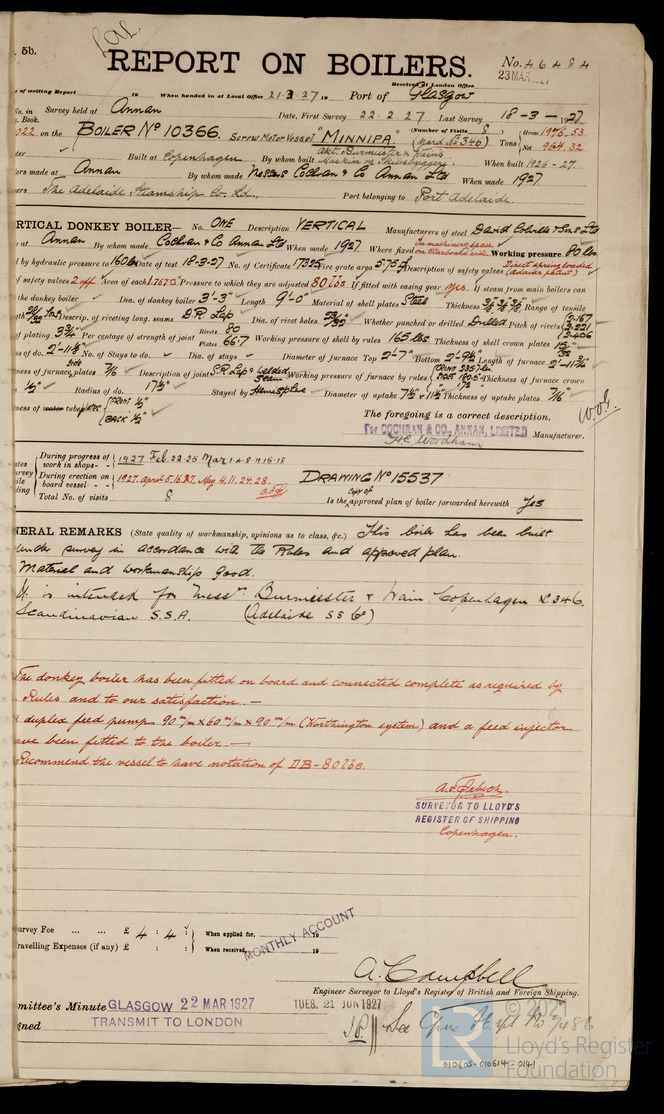 5b.
REPORT ON BOILERS.
No. 46484
23 MAR 1927
Received at London Office
of writing Report 19 When handed in at Local Office 21.3.27 19 Port of Glasgow
No. in Survey held at Annan Date, First Survey 22.2.27 Last Survey 18-3-1927
Book.
on the BOILER No 10366. Screw Motor Vessel "MINNIPA." (Number of Visits 8) Tons Gross 1975.53
(Yard No 346) Net 964.32
Built at Copenhagen By whom built Akt. Burmeister & Wains When built 1926-27.
Maskin og Skibsbyggeri
made at Annan By whom made Messrs Cochran & Co Annan Ltd When made 1927
The Adelaide Steamship Co. Ld., Port belonging to Port Adelaide.
RTICAL DONKEY BOILER— No. ONE Description VERTICAL Manufacturers of steel David Colville & Sons Ltd
at Annan By whom made Cochran & Co Annan Ltd When made 1927 Where fixed In machinery space on Starboard side Working pressure 80 lbs
by hydraulic pressure to 160 lbs Date of test 18-3-27 No. of Certificate 17325 Fire grate area Description of safety valves Direct spring loaded
(Adams patent)
of safety valves 2 off Area of each Pressure to which they are adjusted 80 lbs If fitted with easing gear yes. If steam from main boilers can
the donkey boiler Dia. of donkey boiler 3'-3" Length 9'-0" Material of shell plates Steel Thickness Range of tensile
Descrip. of riveting long. seams D.R. Lap Dia. of rivet holes Whether punched or drilled Drilled Pitch of rivets
of plating 3¾" Per centage of strength of joint Rivets 80 Plates 66.7 Working pressure of shell by rules 165 lbs Thickness of shell crown plates
us of do. 2'-11⅛" No. of Stays to do. Dia. of stays Diameter of furnace Top 2'-7" Bottom 2'-9¾" Length of furnace 2'-11¾"
ness of furnace plates 7/16" Description of joint S.R. Lap & Welded Seam Working pressure of furnace by rules Thickness of furnace crown
½" Radius of do. 17½" Stayed by Hemisphere Diameter of uptake Thickness of uptake plates 7/16"
ness of water tube plates FRONT ½"
BACK ½"
The foregoing is a correct description.
For COCHRAN & CO., ANNAN, LIMITED
Manufacturer.
During progress of work in shops - - 1927 Feb. 22 25 Mar 1 4 8 11 15 18
During erection on board vessel - - 1927. April 5. 16. 27. May 4. 11. 24. 28.
Total No. of visits 8
DRAWING No 15537
Is the copy of approved plan of boiler forwarded herewith Yes
NERAL REMARKS (State quality of workmanship, opinions as to class, &c.) This boiler has been built
under survey in accordance with the Rules and approved plan.
Material and workmanship good.
It is intended for Messrs Burmeister & Wain, Copenhagen No 346.
Scandinavian S.S.A. (Adelaide SS Co)
The donkey boiler has been fitted on board and connected complete as required by
Rules and to our satisfaction.—
duplex feed pump 90 m/m x 60 m/m x 90 m/m (Worthington system) and a feed injector
ave been fitted to the boiler.—
Recommend the vessel to have notation of DB-80 lbs.
SURVEYOR TO LLOYD'S
REGISTER OF SHIPPING
Copenhagen.
urvey Fee ... ... £ 4 : 4 : When applied for, 19
ravelling Expenses (if any) £ : : When received, 19
MONTHLY ACCOUNT
A. Campbell
Engineer Surveyor to Lloyd's Register of British and Foreign Shipping.
mmittee's Minute GLASGOW 22 MAR 1927 TUES. 21 JUN 1927
ned TRANSMIT TO LONDON
See
© 2021
LR
Lloyd's Register
Foundation
010605-010614-0141